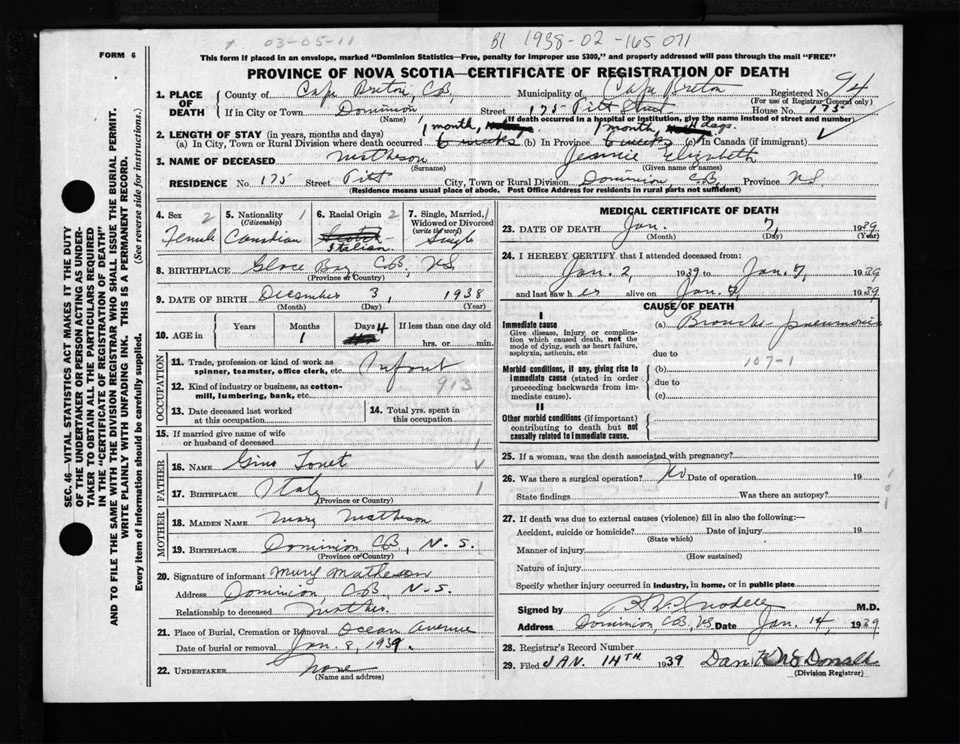 03-05-11
B1 1938-02-165 071
FORM 6
This form if placed in an envelope, marked "Dominion Statistics—Free, penalty for improper use $300," and properly addressed will pass through the mail "FREE"
PROVINCE OF NOVA SCOTIA—CERTIFICATE OF REGISTRATION OF DEATH
94
SEC. 46—VITAL STATISTICS ACT MAKES IT THE DUTY
OF THE UNDERTAKER OR PERSON ACTING AS UNDER-
TAKER TO OBTAIN ALL THE PARTICULARS REQUIRED
IN THE "CERTIFICATE OF REGISTRATION OF DEATH"
AND TO FILE THE SAME WITH THE DIVISION REGISTRAR WHO SHALL ISSUE THE BURIAL PERMIT.
WRITE PLAINLY WITH UNFADING INK. THIS IS A PERMANENT RECORD.
Every item of information should be carefully supplied. (See reverse side for instructions.)
1. PLACE OF DEATH County of Cape Breton, C.B, Municipality of Cape Breton Registered No
(For use of Registrar General only)
If in City or Town Dominion Street 175 Pitt Street House No. 175
(Name) (If death occurred in a hospital or institution, give the name instead of street and number)
2. LENGTH OF STAY (in years, months and days) 1 month, 1 month, 4 days.
(a) In City, Town or Rural Division where death occurred 6 weeks (b) In Province 6 weeks (c) In Canada (if immigrant)
3. NAME OF DECEASED Matheson Jeannie Elizabeth
(Surname) (Given name or names)
RESIDENCE No 175 Street Pitt City, Town or Rural Division Dominion C.B, Province N.S.
(Residence means usual place of abode. Post Office Address for residents in rural parts not sufficient)
4. Sex 2 5. Nationality 1 6. Racial Origin 2 7. Single, Married, 1
(Citizenship) Widowed or Divorced
(write the word)
Female Canadian Scotch Single
Italian
8. BIRTHPLACE Glace Bay, C.B, N.S.
(Province or Country)
9. DATE OF BIRTH December 3, 1938
(Month) (Day) (Year)
10. AGE in Years Months Days If less than one day old
1 4 hrs. or min.
OCCUPATION
11. Trade, profession or kind of work as
spinner, teamster, office clerk, etc. Infant
12. Kind of industry or business, as cotton- 913
mill, lumbering, bank, etc.
13. Date deceased last worked
at this occupation
14. Total yrs. spent in
this occupation
15. If married give name of wife
or husband of deceased
FATHER
16. NAME Gino Tonet
17. BIRTHPLACE Italy 1
(Province or Country)
MOTHER
18. MAIDEN NAME Mary Matheson
19. BIRTHPLACE Dominion C.B, N.S.
(Province or Country)
20. Signature of informant Mary Matheson
Address Dominion, C.B, N.S.
Relationship to deceased Mother
21. Place of Burial, Cremation or Removal Ocean Avenue
Date of burial or removal Jan. 8, 1939.
22. UNDERTAKER None
(Name and address)
MEDICAL CERTIFICATE OF DEATH
23. DATE OF DEATH Jan. 7, 1939
(Month) (Day) (Year)
24. I HEREBY CERTIFY that I attended deceased from:
Jan. 2, 1939 to Jan. 7, 1939
and last saw her alive on Jan. 7, 1939
CAUSE OF DEATH
I
Immediate cause (a) Broncho-pneumonia
Give disease, injury or complica-
tion which caused death, not the
mode of dying, such as heart failure,
asphyxia, asthenia, etc due to
107-1
Morbid conditions, if any, giving rise to (b)
immediate cause (stated in order due to
proceeding backwards from im-
mediate cause). (c)
II
Other morbid conditions (if important)
contributing to death but not
causally related to immediate cause.
25. If a woman, was the death associated with pregnancy?
26. Was there a surgical operation? No Date of operation 19
State findings Was there an autopsy?
27. If death was due to external causes (violence) fill in also the following:—
Accident, suicide or homicide? Date of injury 19
(State which)
Manner of injury
(How sustained)
Nature of injury
Specify whether injury occurred in industry, in home, or in public place
Signed by M.D.
Address Dominion, C.B, N.S Date Jan. 14, 1939
28. Registrar's Record Number
29. Filed JAN. 14TH 1939 Dan McDonald
(Division Registrar)